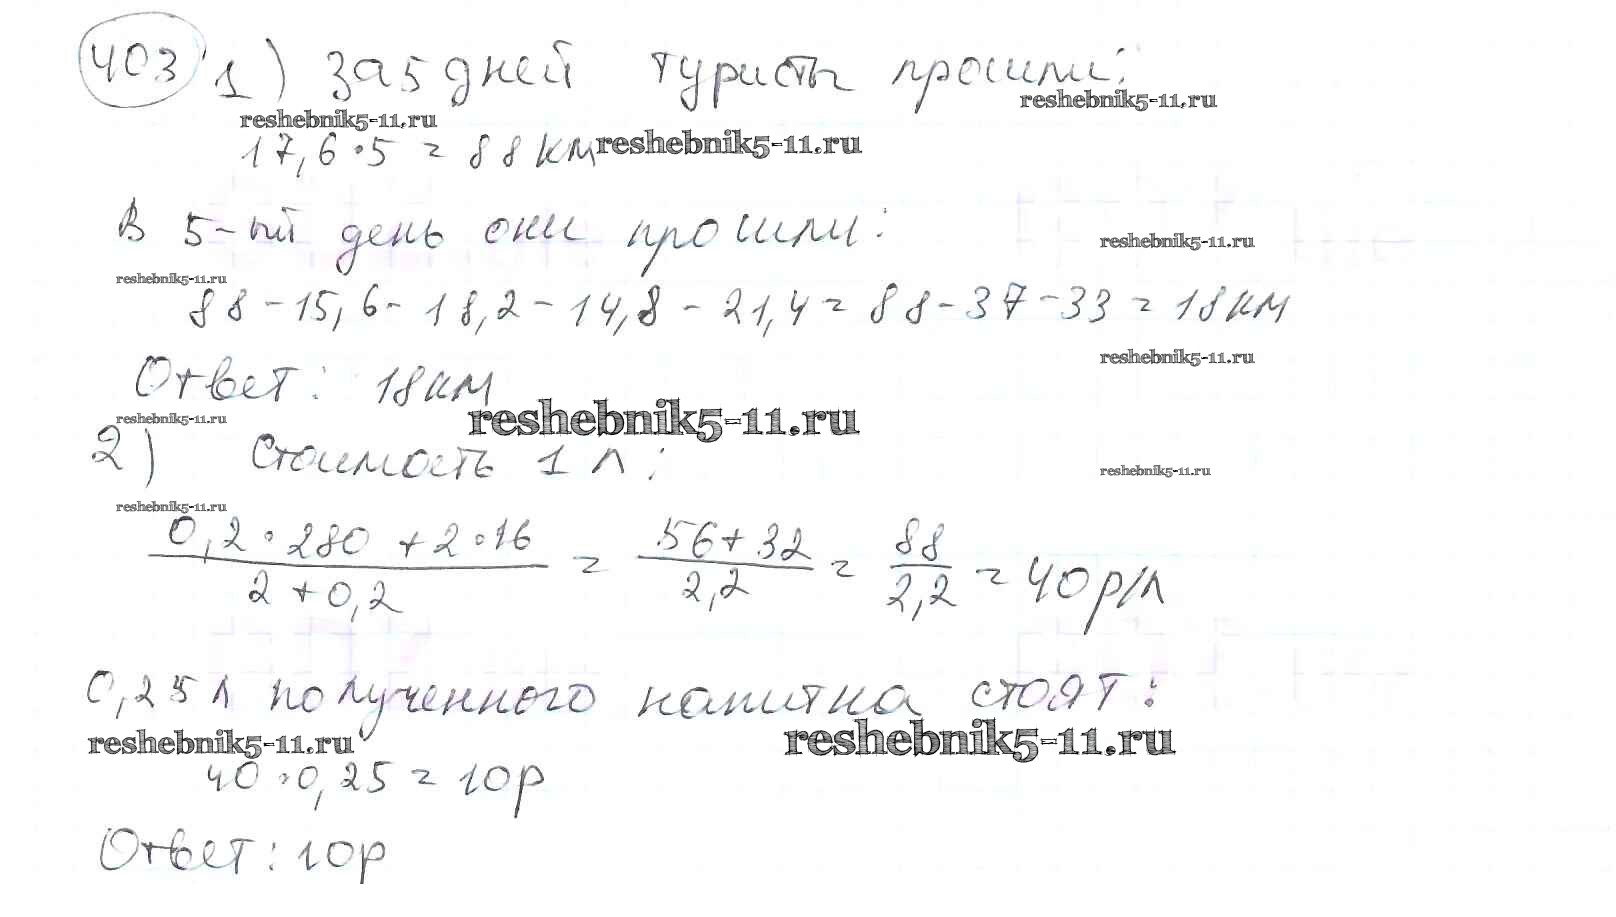 403 1) За 5 дней туристы прошли:
reshebnik5-11.ru
reshebnik5-11.ru
17,6·5 = 88 км
reshebnik5-11.ru
В 5-ый день они прошли:
reshebnik5-11.ru
reshebnik5-11.ru
88-15,6-18,2-14,8-21,4=88-37-33=18км
reshebnik5-11.ru
Ответ: 18км
reshebnik5-11.ru
reshebnik5-11.ru
2) Стоимость 1 л:
reshebnik5-11.ru
reshebnik5-11.ru
0,2·280+2·16 / 2+0,2 = 56+32 / 2,2 = 88 / 2,2 = 40р/л
0,25л полученного напитка стоят:
reshebnik5-11.ru
reshebnik5-11.ru
40·0,25=10р
Ответ: 10р